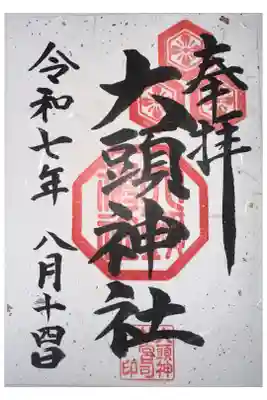 奉拝
大頭神社
令和七年 八月十四日
大頭神
社宮司
印